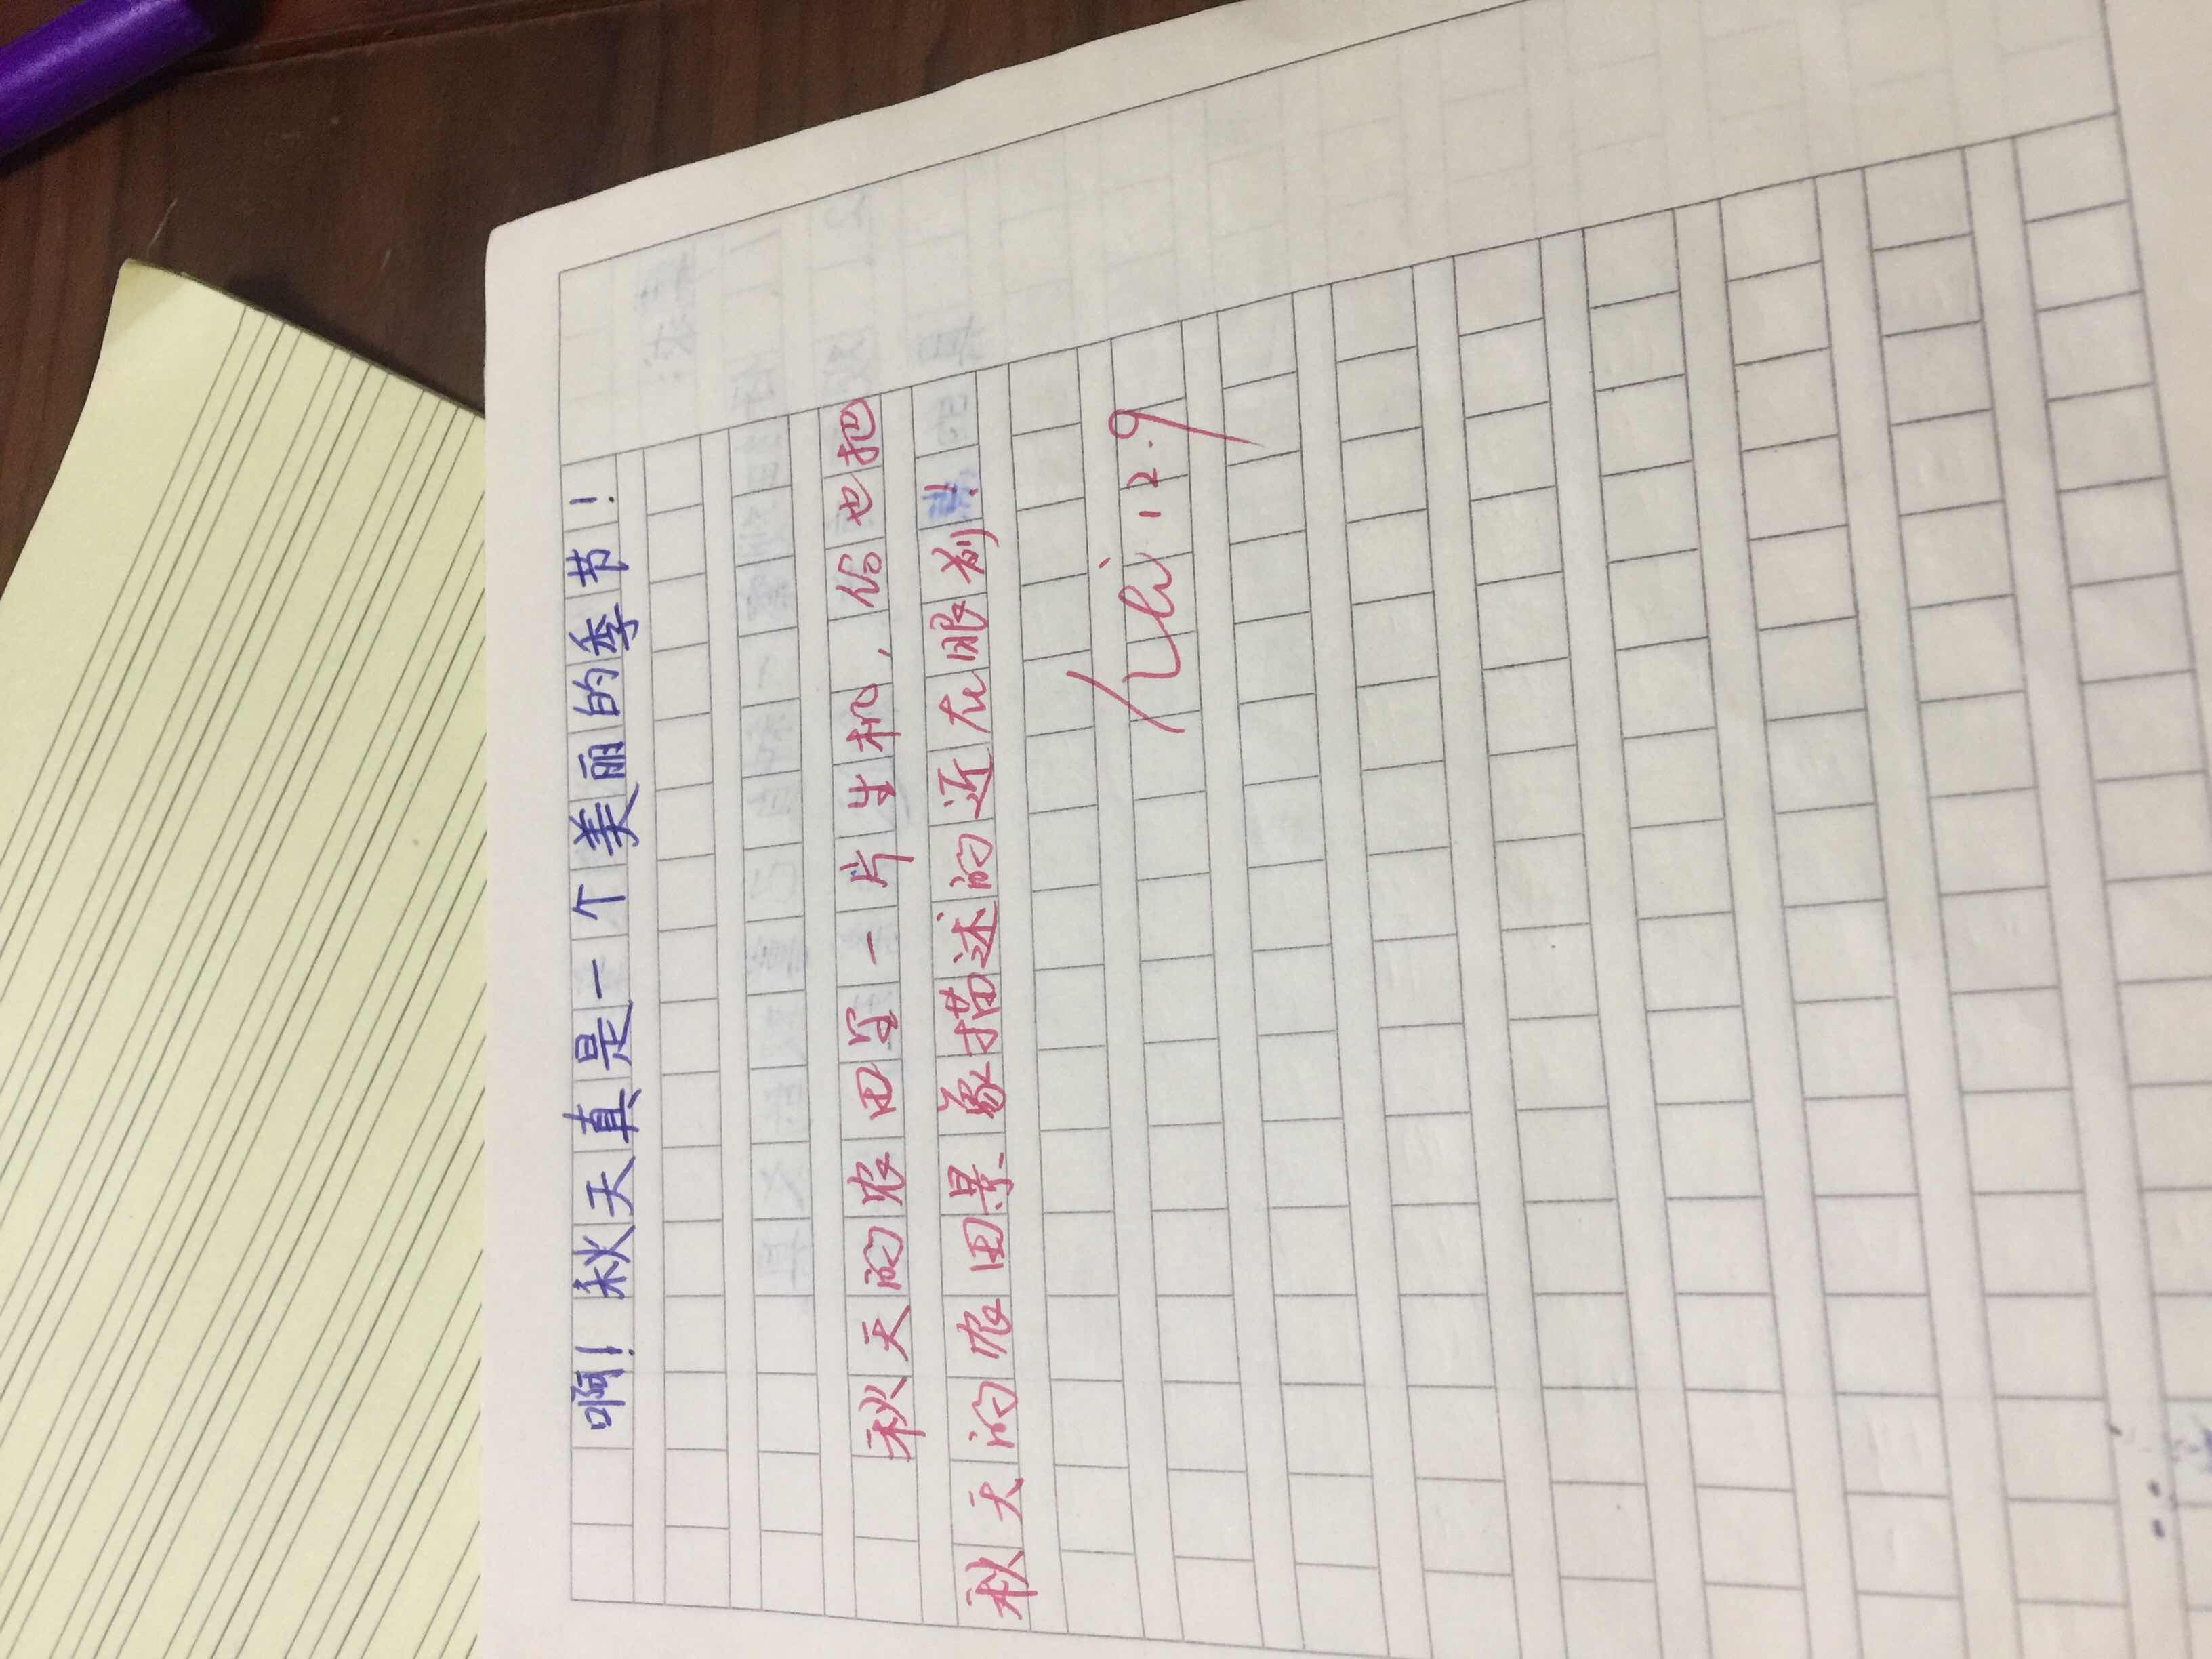 啊！秋天真是一个美丽的季节！
秋天的农田里一片生机，你也把
秋天的农田景象描述的近在眼前！
12.9